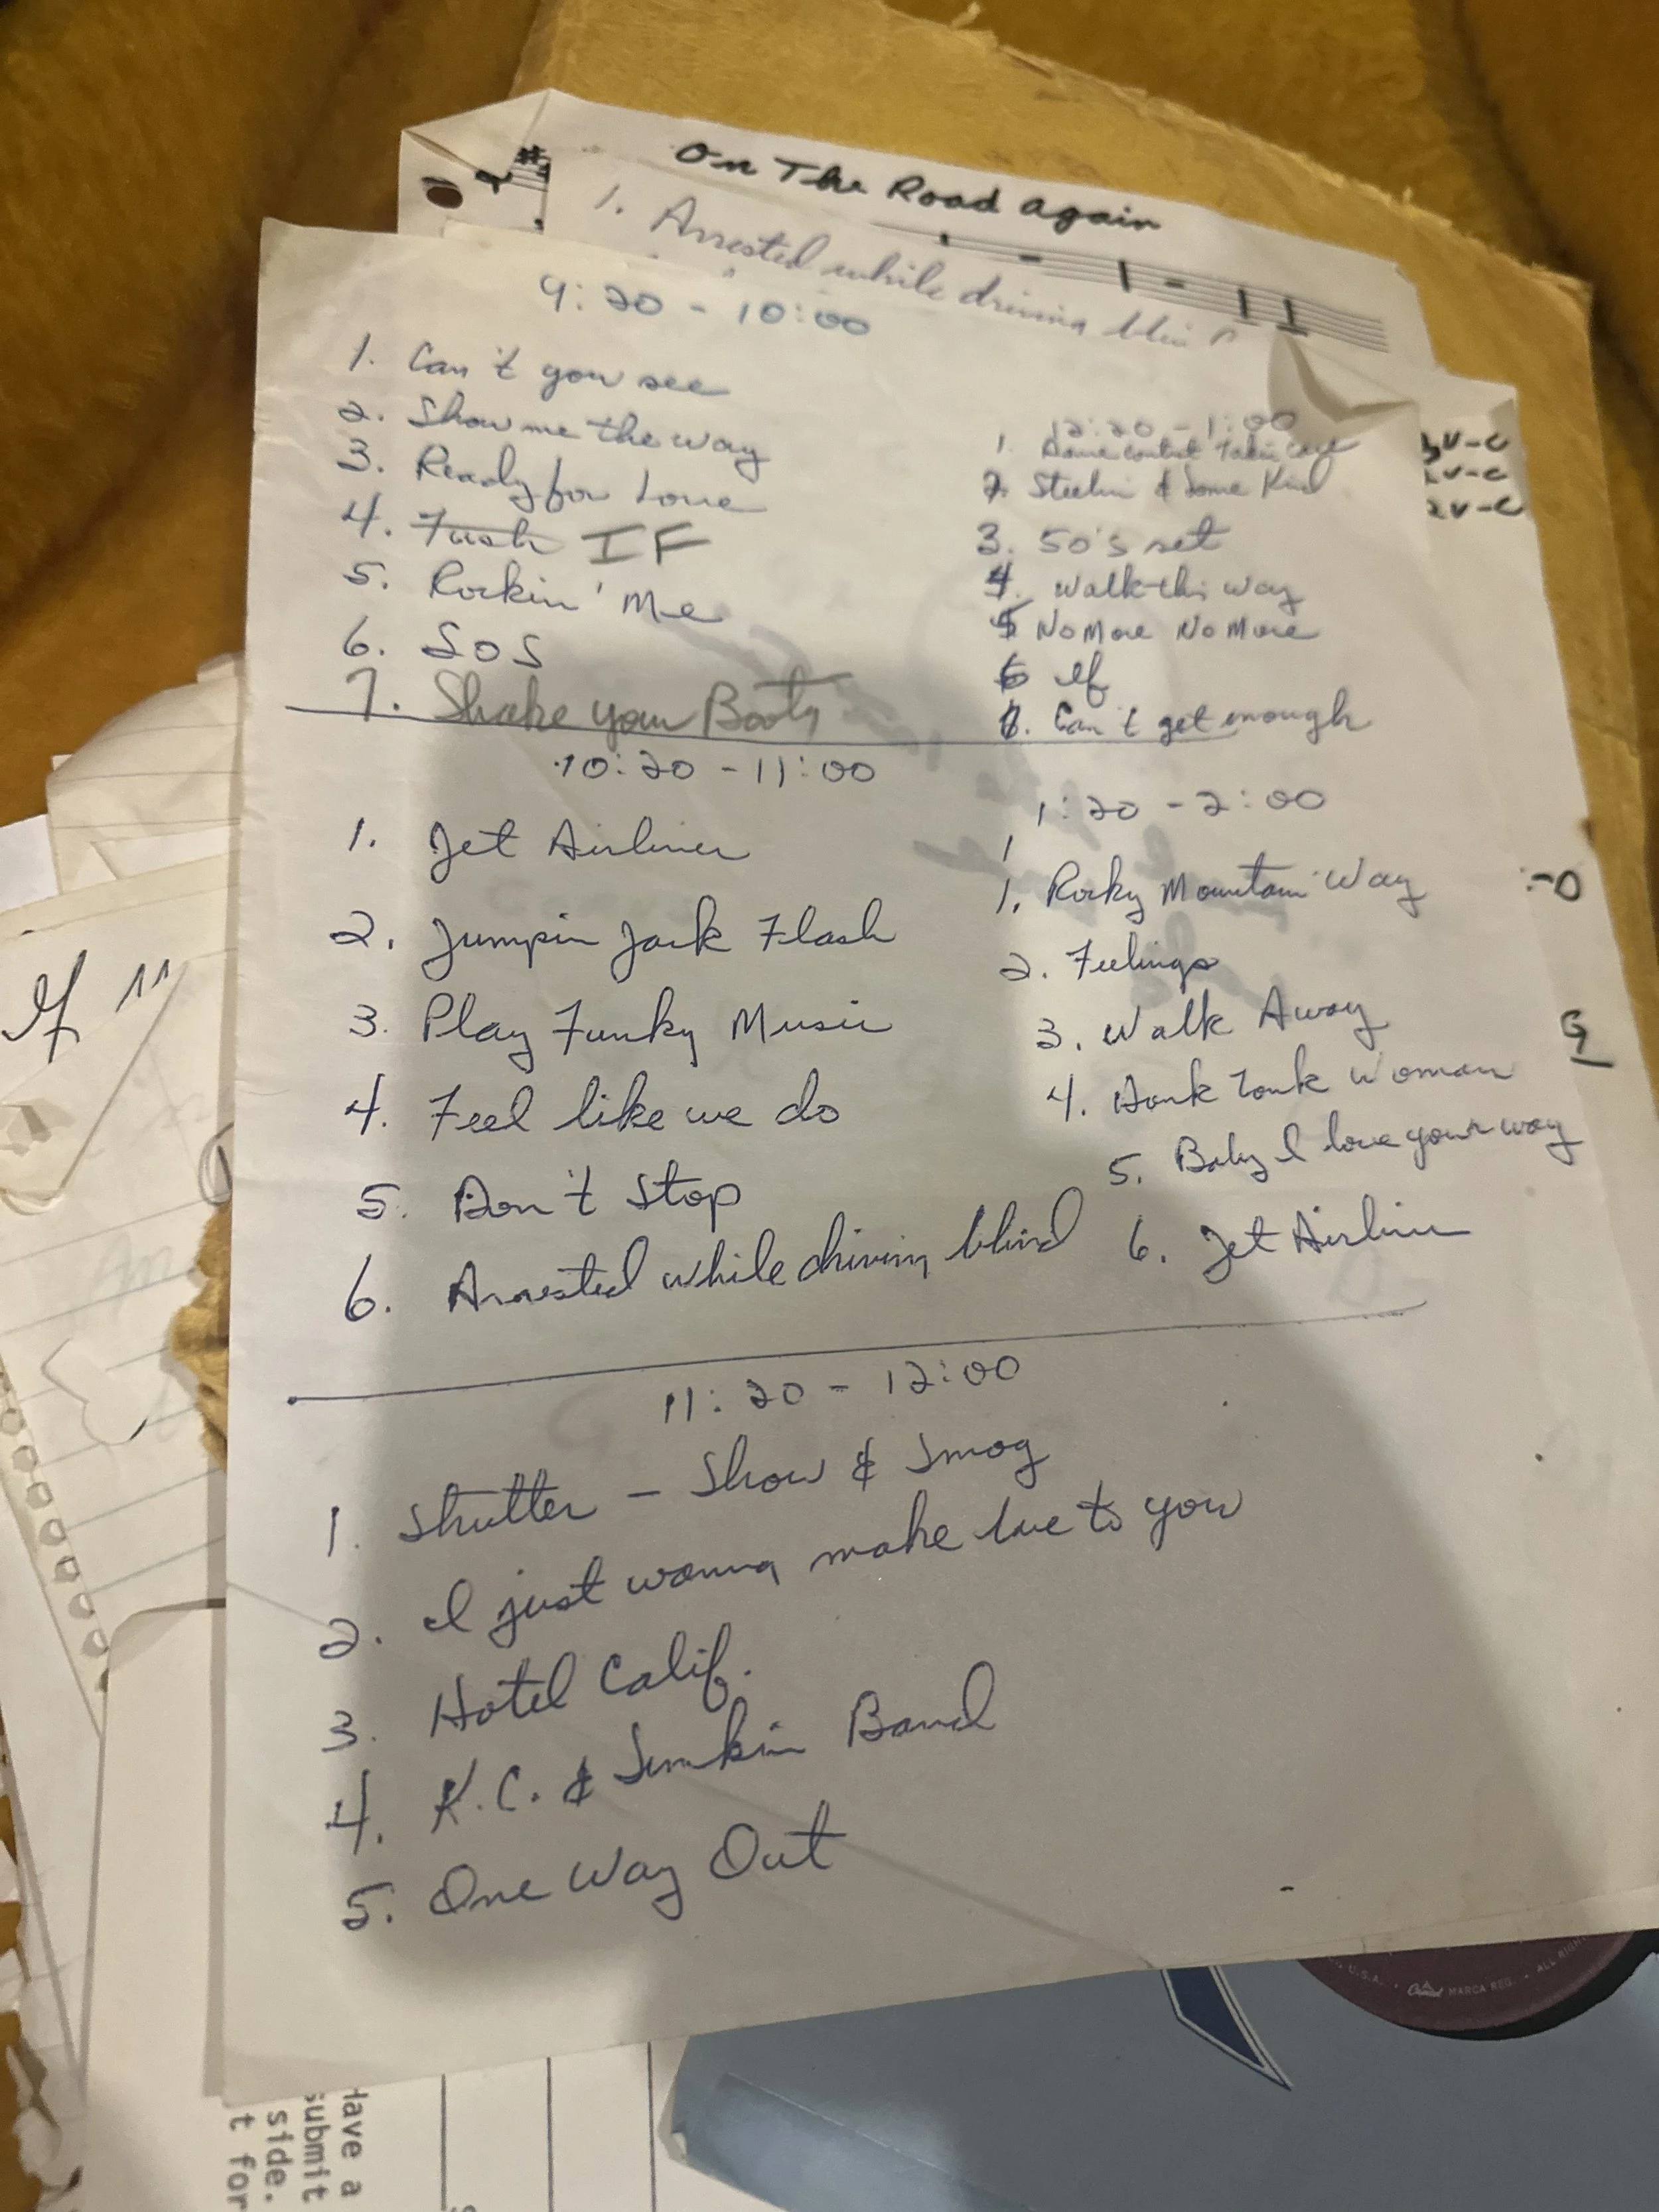 On The Road Again
1. Arrested while driving bli
9:20 - 10:00
1. Can't you see
2. Show me the way
3. Ready for Love
4. Tush IF
5. Rockin' Me
6. SOS
7. Shake your Booty
10:20 - 11:00
1. Jet Airliner
2. Jumpin Jack Flash
3. Play Funky Music
4. Feel like we do
5. Don't Stop
6. Arrested while driving blind
11:20 - 12:00
1. Shutter - Show & Smog
2. I just wanna make love to you
3. Hotel Calif.
4. K.C. & Sunkin Band
5. One Way Out
12:20 - 1:00
1. Takin Care
2. Steelin & Some Kind
3. 50's set
4. Walk this way
5 No More No More
6 If
8. Can't get enough
1:20 - 2:00
1
1. Rocky Mountain Way
2. Feelings
3. Walk Away
4. Honk Tonk Woman
5. Baby I love your way
6. Jet Airliner
V-C
2V-C
2V-C
:-O
G
If "
Have a
submit
side.
t for
U.S.A. • Capitol MARCA REG. • ALL RIGH